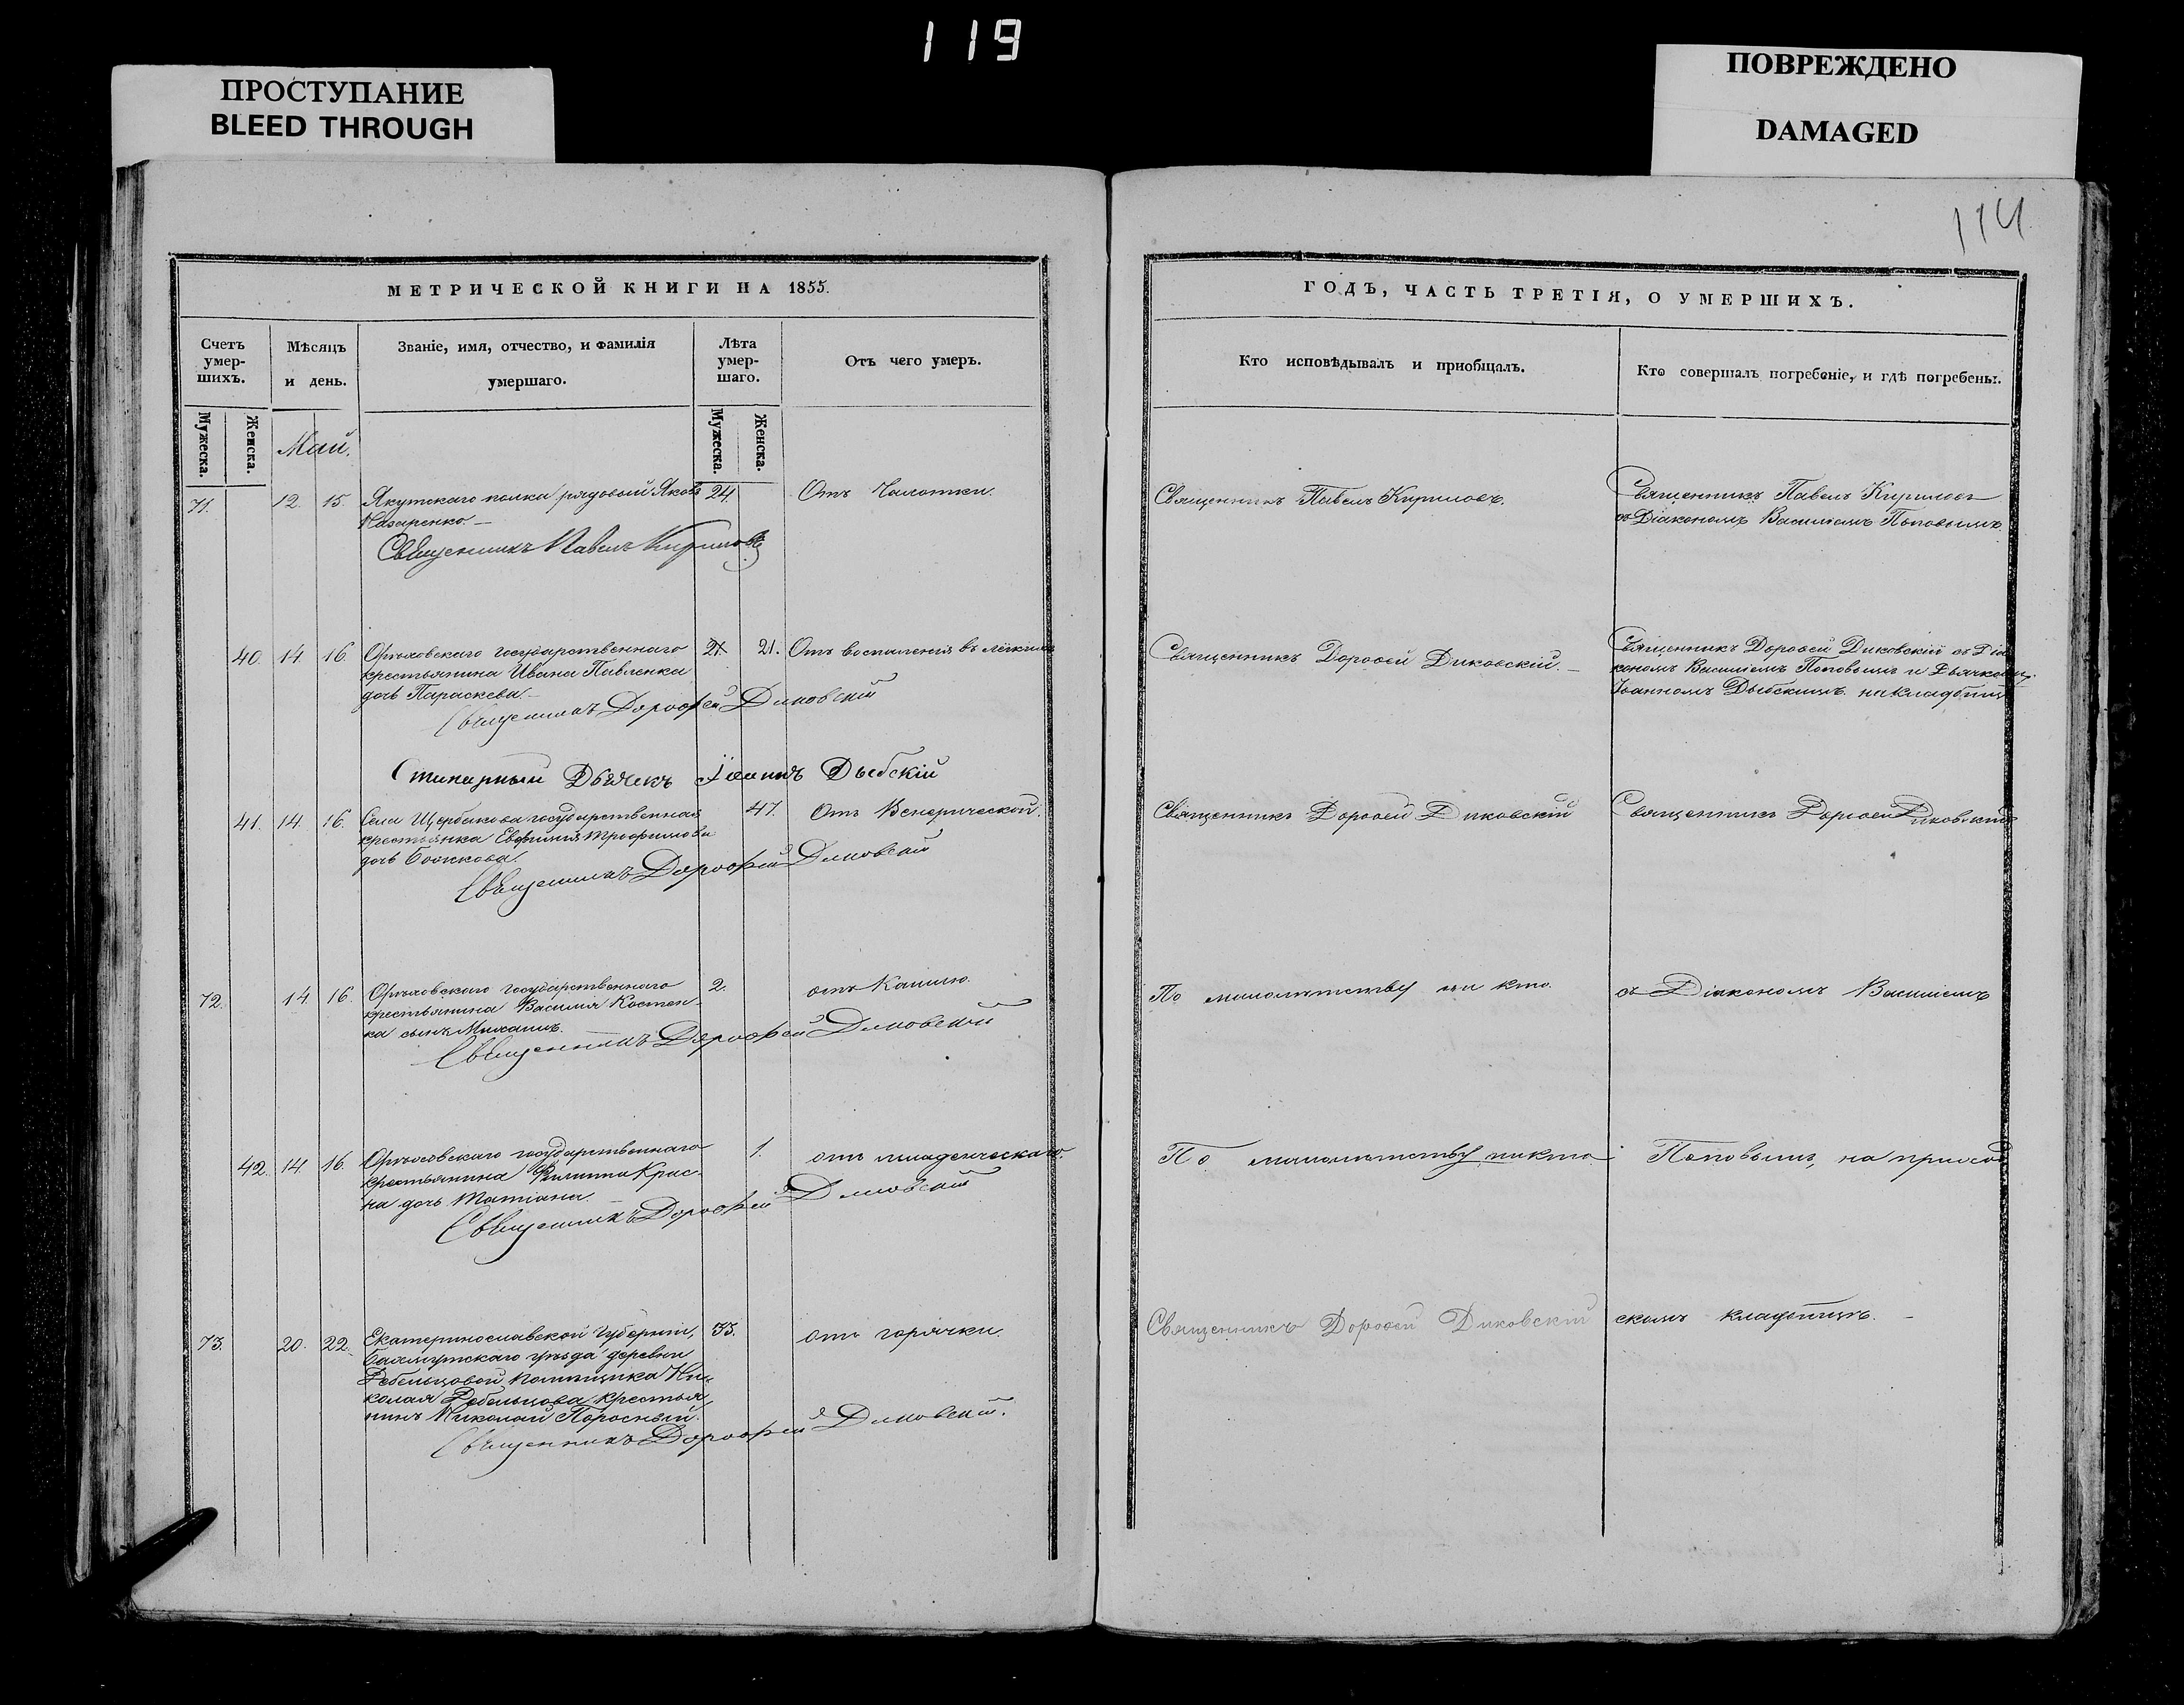 119
ПРОСТУПАНИЕ
BLEED THROUGH
ПОВРЕЖДЕНО
DAMAGED
114
МЕТРИЧЕСКОЙ КНИГИ НА 1855.
Счетъ умер-шихъ.
Мѣсяцъ и день.
Званіе, имя, отчество, и фамилія умершаго.
Лѣта умер-шаго.
Отъ чего умеръ.
Мужеска. Женска.
Мужеска. Женска.
Май.
71. 12. 15. Якутскаго полка рядовый Яковъ 24. Отъ Чахотки.
Назаренко.
Священникъ Павелъ Кириловъ
40. 14. 16. Орѣховскаго государственнаго 21. 21. Отъ воспаленія въ лёгкихъ
крестьянина Ивана Павленка
дочь Параскева.
Священникъ Дорофей Диковскій
Стихарный Дьячекъ Іоаннъ Дыбскій
41. 14. 16. Села Щербакова государственная 47. Отъ Венерической.
крестьянка Евфимія Трофимова
дочь Божкова.
Священникъ Дорофей Диковскій
72. 14. 16. Орѣховскаго государственнаго 2. отъ Кашлю.
крестьянина Василія Костен-
ка сынъ Михаилъ.
Священникъ Дорофей Диковскій
42. 14. 16. Орѣховскаго государственнаго 1. отъ младенческаго
крестьянина Филиппа Крас-
на дочь Татіана.
Священникъ Дорофей Диковскій
73. 20. 22. Екатеринославской Губерніи, 33. отъ горячки.
Бахмутскаго уѣзда деревни
Дебельцовой помѣщика Ни-
колая Дебельцова крестья-
нинъ Николай Поросный.
Священникъ Дорофей Диковскій.
ГОДЪ, ЧАСТЬ ТРЕТІЯ, О УМЕРШИХЪ.
Кто исповѣдывалъ и пріобщалъ.
Кто совершалъ погребеніе, и гдѣ погребены.
Священникъ Павелъ Кириловъ.
Священникъ Павелъ Кириловъ
съ Діакономъ Василіемъ Поповымъ.
Священникъ Дороѳей Диковскій.
Священникъ Дороѳей Диковскій съ Діа
кономъ Василіемъ Поповымъ и Дьячкомъ
Іоанномъ Дыбскимъ на кладбищѣ
Священникъ Дороѳей Диковскій
Священникъ Дороѳей Диковскій
По малолѣтству ни кто.
съ Діакономъ Василіемъ
По малолѣтству никто.
Поповымъ, на приход
Священникъ Дороѳей Диковскій
скомъ кладбищѣ.